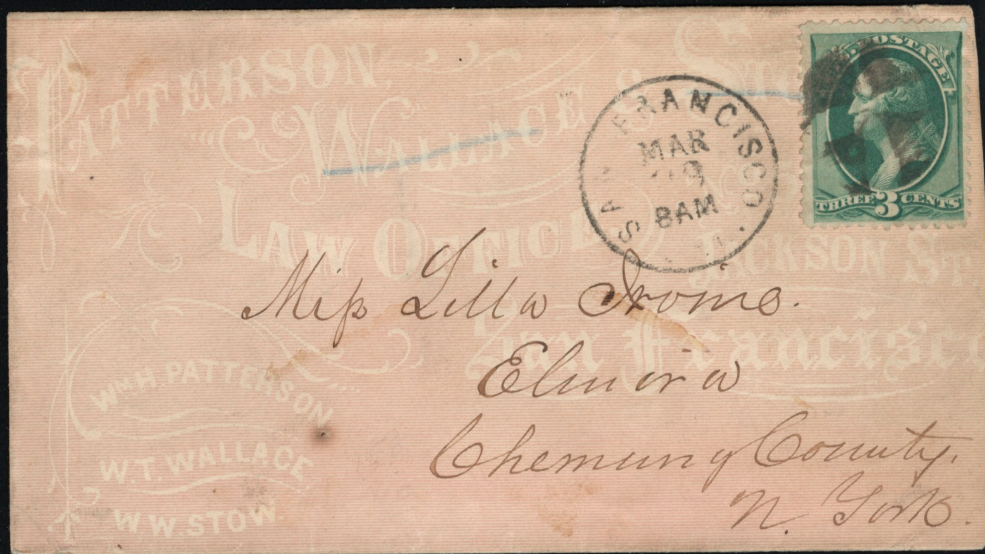 PATTERSON,
WALLACE & STOW
LAW OFFICE
JACKSON ST
San Francisco
WM H. PATTERSON
W. T. WALLACE
W. W. STOW.
SAN FRANCISCO
MAR
8AM
POSTAGE
THREE 3 CENTS
Miss Lilla
Elmira
Chemung County.
N. York.